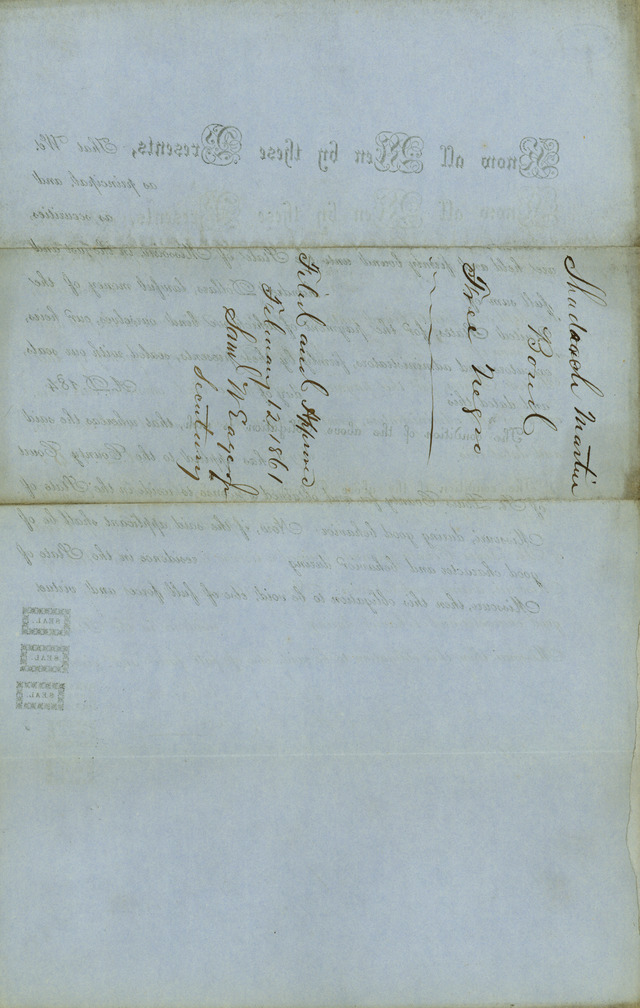 Shadrach Martin
Bond
Free Negro
Filed and Approved
February 12 1861
Sam'l W Eager Jr
Secretary
Know all Men by these Presents, That We,
as principal, and
Know all Men by these Presents,
as securities
are held and firmly bound unto the State of Missouri, in the just and
full sum of Dollars, lawful money of the
United States, for the payment of which we bind ourselves, our heirs,
executors and administrators, firmly by these presents, sealed with our seals,
and dated this day of A.D. 184
The condition of the above obligation is such, that whereas the said
has applied to the County Court
of St. Louis County for and obtained license to reside in the State of
Missouri, during good behavior: Now, if the said applicant shall be of
good character and behavior during residence in the State of
Missouri, then this obligation to be void, else of full force and virtue.
SEAL.
SEAL.
SEAL.